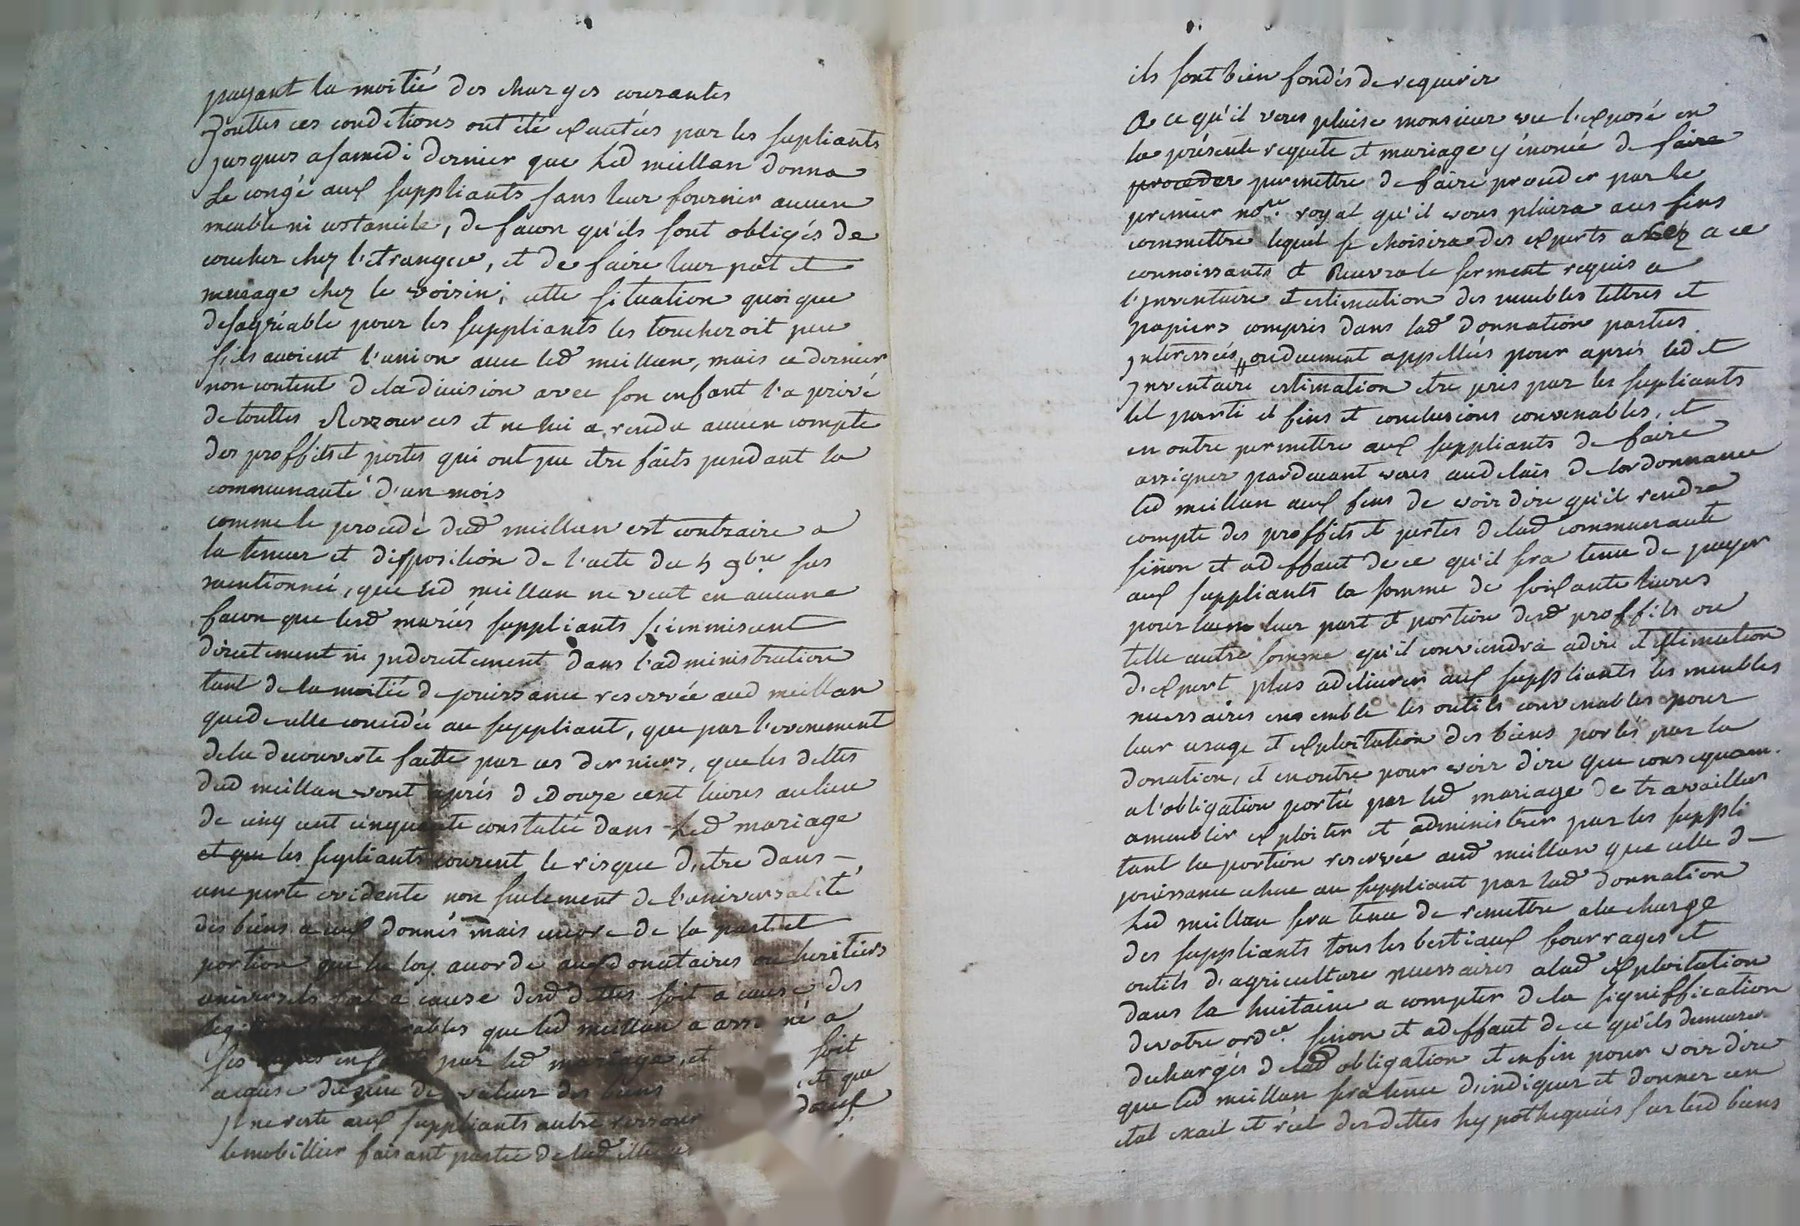 payant la moitié des charges courantes
Touttes ces conditions ont été exautées par les supliants
jusques a samedi dernier que led meillan donna
le congé aux suppliants sans leur fournir aucun
meuble ni ustancile, de facon qu'ils sont obligés de
coucher chez l'etranger, et de faire leur pot et
menage chez le voisin; cette situation quoi que
desagréable pour les suppliants les toucheroit peu
s'ils avoient l'union avec led meillan, mais ce dernier
non content de la division avec son enfant l'a privé
de touttes Ressources et ne lui a rendu aucun compte
des proffits et pertes qui ont pu etre faits pendant la
communauté d'un mois
comme le procedé dud meillan est contraire a
la teneur et disposition de l'acte du 4 9bre sus
mentionné, que led meillan ne veut en aucune
facon que lesd mariés suppliants s'immiscent
directement ni jndirectement dans l'administration
tant de la moitié de jouissance reservée aud meillan
que de celle concedée au suppliant, que par l'evenement
de la decouverte faitte par ces derniers, que les dettes
dud meillan vont après de douze cent livres au lieu
de cinq cent cinquante constatée dans led mariage
et que les supliants courent le risque d'etre dans
une perte evidente non seulement de l'universalité
des biens a eux donnés mais encore de la part et
portion que la loy accorde aux donataires ou heritiers
universels soit a cause desd dettes soit a cause des
que led meillan a
ses enfants par led mariage, et soit
a cause du peu de valeur des biens et que
jl ne reste aux suppliants autre
le mobillier faisant partie de lad
ils sont bien fondés de requerir
A ce qu'il vous plaise monsieur vu l'exposé en
la présente requete et mariage y énoncé de faire
proceder permettre de faire proceder par le
premier nore. royal qu'il vous plaira aux fins
commettre lequel se choisira des experts a ce
connoissants et Recevra le serment requis a
l'jnventaire et estimation des meubles tittres et
papiers compris dans lad donnation parties
jntéressées ou duement appellées pour après led et
jnventaire estimation etre pris par les supliants
tel parti et fins et conclusions convenables, et
en outre permettre aux suppliants de faire
assigner pardevant vous au delais de lordonnance
led meillan aux fins de voir dire qu'il rendra
compte des proffits et pertes de lad communauté
sinon et a deffaut de ce qu'il sera tenu de payer
aux suppliants la somme de soixante livres
pour leur part et portion desd proffits ou
telle autre somme qu'il conviendra a dire et estimation
d'expert plus a delivrer aux suppliants les meubles
necessaires ensemble les outils convenables pour
leur usage et exploitation des biens portés par la
donation, et en outre pour voir dire que
a l'obligation portée par led mariage de travailler
ameublir exploiter et administrer par les suppli
tant la portion reservée aud meillan que celle de
jouissance echue au suppliant par lad donnation
led meillan sera tenu de remettre a la charge
des suppliants tous les bestiaux fourrages et
outils d'agriculture necessaires a lad exploitation
dans la huitaine a compter de la signiffication
de votre ordce. sinon et a deffaut de ce qu'ils demeurer
dechargés de lad obligation et enfin pour voir dire
que led meillan sera tenu d'indiquer et donner un
etat exact et réel des dettes hypothequées sur lesd biens